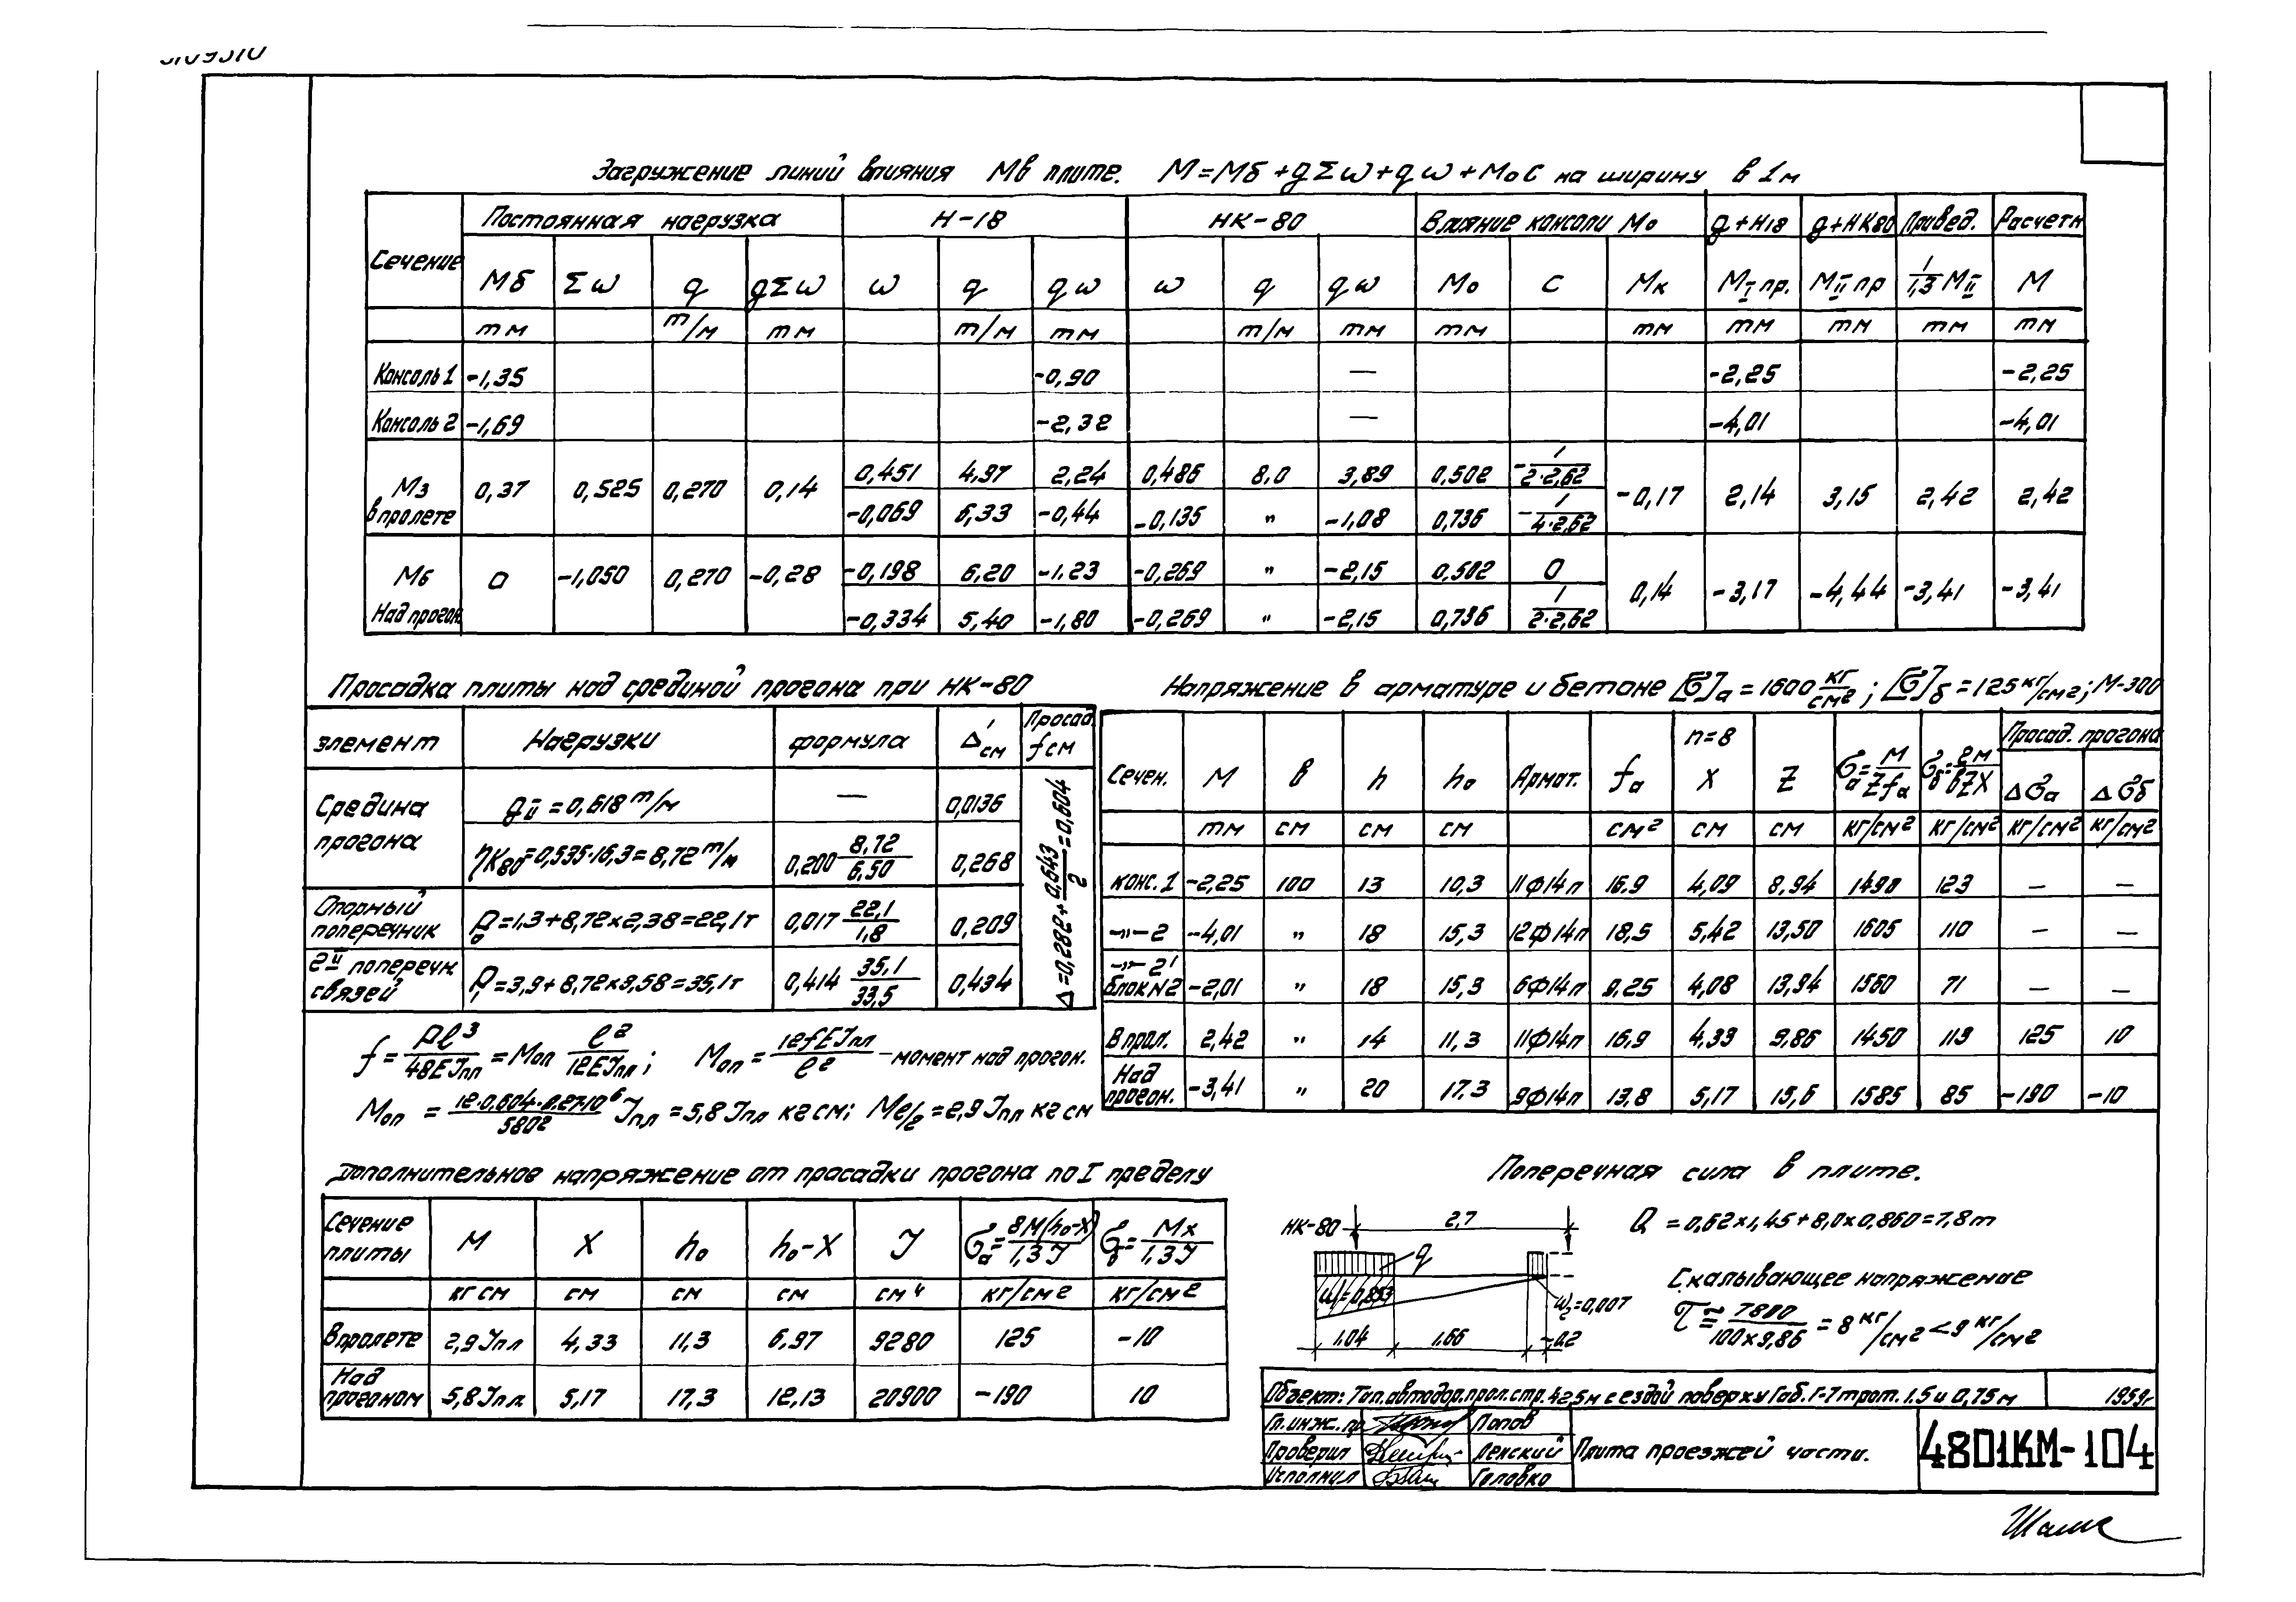 Загружение линий влияния М в плите. M=Mб+gΣω+qω+MoC на ширину в 1м
Сечение | Постоянная нагрузка | Н-18 | НК-80 | Влияние консоли Мо | g+H18 | g+НК80 | Привед. | Расчетн
Мб | Σω | q | gΣω | ω | q | qω | ω | q | qω | Мо | С | Мк | MI пр. | MII пр | 1/1,3 MII | М
тм | т/м | тм | т/м | тм | т/м | тм | тм | тм | тм | тм | тм | тм
Консоль 1 | -1,35 | -0,90 | — | -2,25 | -2,25
Консоль 2 | -1,69 | -2,32 | — | -4,01 | -4,01
М3 в пролете | 0,37 | 0,525 | 0,270 | 0,14 | 0,451 | 4,97 | 2,24 | 0,486 | 8,0 | 3,89 | 0,502 | -1/2·2,62 | -0,17 | 2,14 | 3,15 | 2,42 | 2,42
-0,069 | 6,33 | -0,44 | -0,135 | " | -1,08 | 0,736 | -1/4·2,62
М6 Над прогон. | 0 | -1,050 | 0,270 | -0,28 | -0,198 | 6,20 | -1,23 | -0,269 | " | -2,15 | 0,502 | 0 | 0,14 | -3,17 | -4,44 | -3,41 | -3,41
-0,334 | 5,40 | -1,80 | -0,269 | " | -2,15 | 0,736 | 1/2·2,62
Просадка плиты над срединой прогона при НК-80
элемент | Нагрузки | формула | Δ' см | Просад. f см
Средина прогона | gII=0,618 т/м | — | 0,0136
ηK80=0,535·16,3=8,72 т/м | 0,200 8,72/6,50 | 0,268
Опорный поперечник | Po=1,3+8,72×2,38=22,1т | 0,017 22,1/1,8 | 0,209
2й поперечн. связей | P1=3,9+8,72×3,58=35,1т | 0,414 35,1/33,5 | 0,434
Δ=0,282+0,643/2=0,604
f=Pl³/48EJпл=Моп l²/12EJпл; Моп=12fEJпл/l² –момент над прогон.
Моп = 12·0,604·0,27·10⁶/580² Jпл=5,8Jпл кг см; Ml/2=2,9Jпл кг см
Напряжение в арматуре и бетоне [σ]а=1600 кг/см²; [σ]б=125 кг/см²; М-300
Сечен. | М | в | h | ho | Армат. | fа | n=8 X | Z | σа=M/Zfа | σб=2м/вZX | Просад. прогона
Δσа | Δσб
тм | см | см | см | см² | см | см | кг/см² | кг/см² | кг/см² | кг/см²
конс.1 | -2,25 | 100 | 13 | 10,3 | 11ф14п | 16,9 | 4,09 | 8,94 | 1490 | 123 | — | —
–"–2 | -4,01 | " | 18 | 15,3 | 12ф14п | 18,5 | 5,42 | 13,50 | 1605 | 110 | — | —
–"–2' блок N2 | -2,01 | " | 18 | 15,3 | 6ф14п | 9,25 | 4,08 | 13,94 | 1560 | 71 | — | —
В прол. | 2,42 | " | 14 | 11,3 | 11ф14п | 16,9 | 4,33 | 9,86 | 1450 | 113 | 125 | 10
Над прогон. | -3,41 | " | 20 | 17,3 | 9ф14п | 13,8 | 5,17 | 15,6 | 1585 | 85 | -190 | -10
Дополнительное напряжение от просадки прогона по I пределу
Сечение плиты | М | X | ho | ho-X | J | σа=8M(ho-X)/1,3J | σб=Mx/1,3J
кг см | см | см | см | см⁴ | кг/см² | кг/см²
В пролете | 2,9Jпл | 4,33 | 11,3 | 6,97 | 9280 | 125 | -10
Над прогоном | 5,8Jпл | 5,17 | 17,3 | 12,13 | 20900 | -190 | 10
Поперечная сила в плите.
НК-80 2,7
q
ω1=0,853
ω2=0,007
1.04 1.66 0.2
Q=0,62×1,45+8,0×0,860=7,8т
Скалывающее напряжение
τ≈7800/100×9,86=8 кг/см²<9 кг/см²
Объект: Тип.автодор.прол.стр.42,5м с ездой поверху Габ.Г-7 трот. 1.5 и 0,75м | 1959г
Гл.инж.пр. | Попов
Проверил | Ленский
Исполнил | Головко
Плита проезжей части.
4801КМ-104